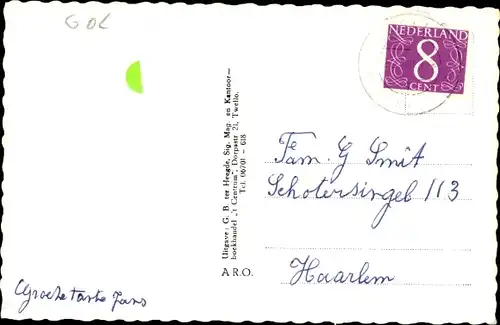 G OL
NEDERLAND
8
CENT
Uitgave: G. B. ter Heegde, Sig. Mag. en Kantoor-
boekhandel „'t Centrum", Dorpsstr. 21, Twello.
Tel. 06701 - 618
A R.O.
Fam. G Smit
Schotersingel 113
Haarlem
Groete tante Jans